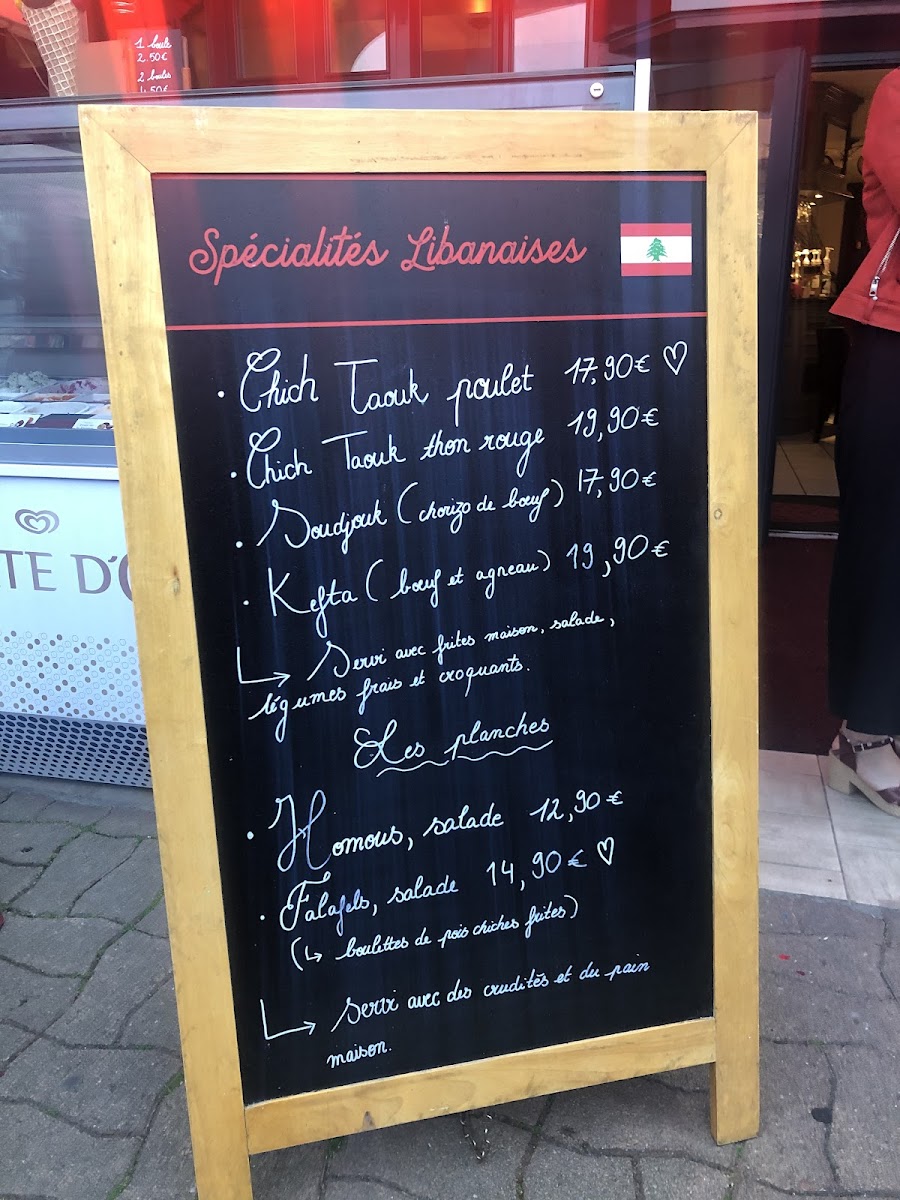 1 boule
2.50€
2 boules
4.50€
Spécialités Libanaises
• Chich Taouk poulet 17,90€ ♡
• Chich Taouk thon rouge 19,90€
• Soudjouk (chorizo de bœuf) 17,90€
• Kefta (bœuf et agneau) 19,90€
↳ Servi avec frites maison, salade,
légumes frais et croquants.
Les planches
• Homous, salade 12,90€
• Falafels, salade 14,90€ ♡
(↳ boulettes de pois chiches frites)
↳ Servi avec des crudités et du pain
maison.
TE D'